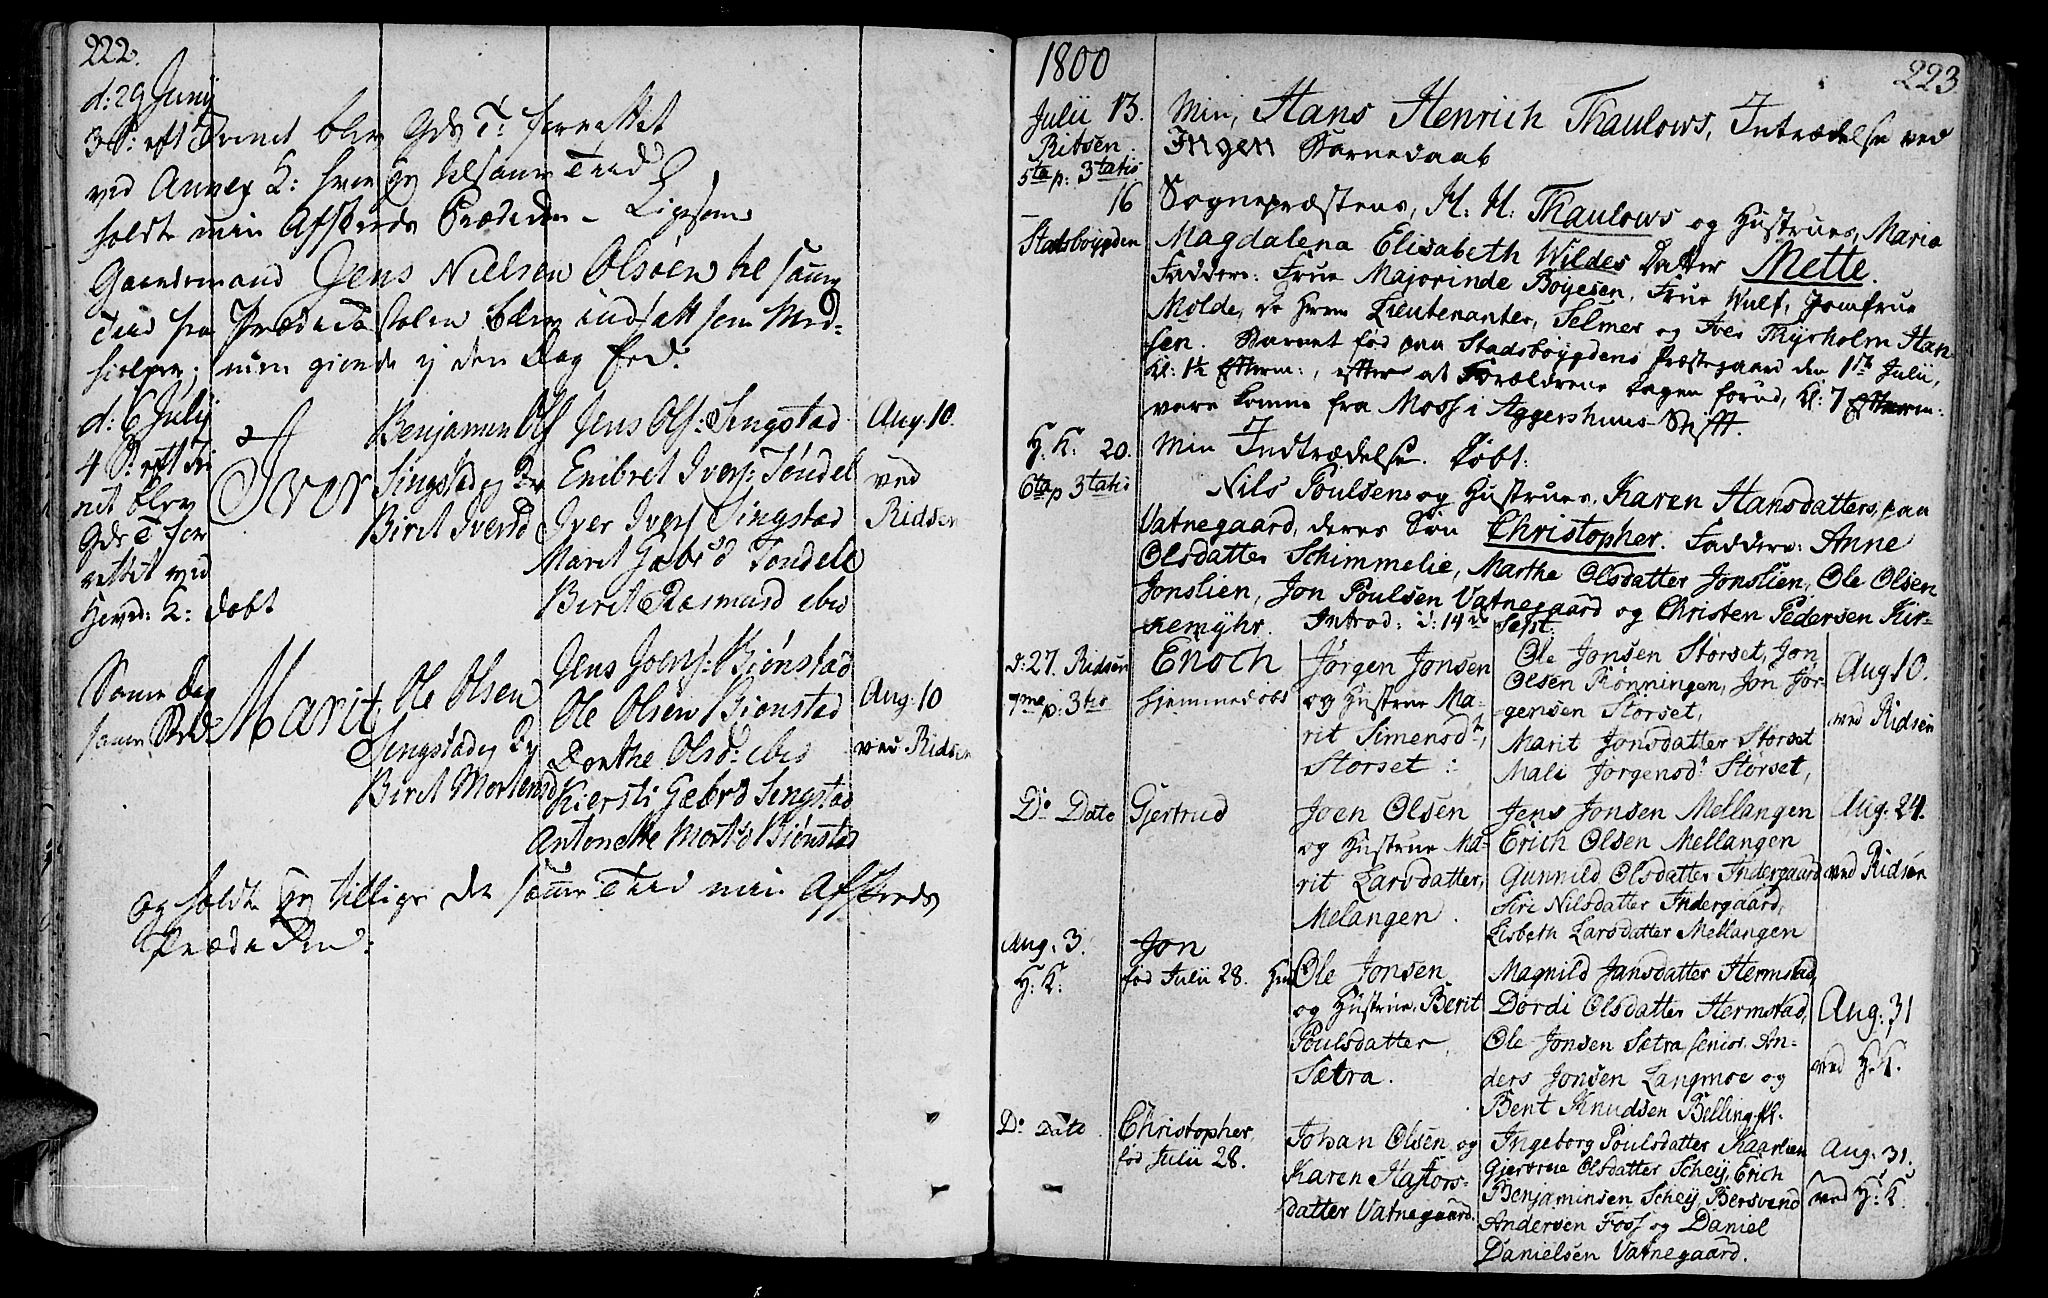 222.
d: 29 Junij
3 S: eft Trinit blev Gds T: forrettet
ved Annex K: hvor jeg tilsamme Tiid
holdt min Afskeeds Prædeken - Ligesom
Gaardemand Jens Nielsen Olsøen til samme
Tiid fra Prædekestolen blev indsatt som Med-
hielper,
d: 6 Julij
4 S: eft Tri
nit blev
Gds T for
rettet ved
Hoved: K: døbt
Iver
Benjamin Ols
Singstad og
Birit Iversd
Jens Ols: Singstad
Enibret Ivers: Tøndel
Iver Ivers Singstad
Marit Gæbrsd Tøndell
Birit Rasmusd ibid
Aug. 10.
ved
Ridsen
Samme Dag
samme Sted
Marit
Ole Olsen
Singstad og
Birit Mortensd
Jens Joens: Biønstad
Ole Olsen Biønstad
Dorthe Olsd: ibid
Kiersti Gæbrd Singstad
Antonette Mortsd Biønstad
Aug. 10
ved Ridsen
og holdt jeg tillige det samme Tiid min Afskeeds
Prædeken:
1800
223
Julii 13.
Ridsen.
5ta p: 3tatis
Min, Hans Henrich Thaulows, Intrædelse ved
Ingen Barnedaab
16
Stadsboygden
Sognepræstens, H. H: Thaulows og Hustrues, Maria
Magdalena Elisabeth Wildes Datter Mette.
Faddere: Frue Majorinde Boyesen, Frue Wulf, Jomfrue
Molde, de Herrer Lieutenanter, Selmer og Iver Thyrholm Han
sen. Barnet fød paa Stadsbøygdens Præstegaard den 15de Julii,
Kl: 1½ Efterm:, efter at Forældrene Dagen forud, Kl: 7 Efterm:
vare komne fra Moss i Aggershuus-Stift.
H: K: 20.
6ta p 3tatis
Min Indtrædelse. Døbt:
Nils Poulsens og Hustrues, Karen Hansdatters, paa
Vatnegaard, deres Søn Christopher. Faddere: Anne
Olsdatter Schimmelie, Marthe Olsdatter Jonslien, Ole Olsen
Jonslien, Jon Poulsen Vatnegaard og Christen Pedersen Kir-
kemyhr. Introd: d: 14de Sept:
d: 27. Ridsen
7me p: 3tis
Enoch
hjemmedøbt
Jørgen Jonsen
og Hustrue Ma-
rit Simensdr,
Storset:
Ole Jonsen Storset, Jon
Olsen Rønningen, Jon Jør-
gensen Storset,
Marit Jonsdatter Storset
Mali Jørgensdr Storset,
Aug 10.
ved Ridsen
Do Dato
Gjertrud
Joen Olsen
og Hustrue Ma-
rit Larsdatter,
Melangen.
Jens Jonsen Mellangen
Erich Olsen Mellangen
Gunnild Olsdatter Indergaard
Siri Nilsdatter Indergaard,
Lisbeth Larsdatter Mellangen
Aug. 24.
ved Ridsen
Aug. 3.
H: K:
Jon
fød Julii 28.
Ole Jonsen
og Hustrue, Berit
Poulsdatter,
Sætra.
Magnild Jansdatter Hermstad,
Dordi Olsdatter Hermstad,
Ole Jonsen Sætra senior, An-
ders Jonsen Langmoe og
Bent Knudsen Belling
Aug: 31
ved H: K.
Do Dato
Christopher,
fød Julii 28.
Johan Olsen og
Karen Kastors-
datter Vatnegaard.
Ingeborg Poulsdatter Kaarlien
Gjertrue Olsdatter Schey, Erich
Benjaminsen Schey, Bersvend
Andersen Foss og Daniel
Danielsen Vatnegaard.
Aug. 31.
ved H: K.